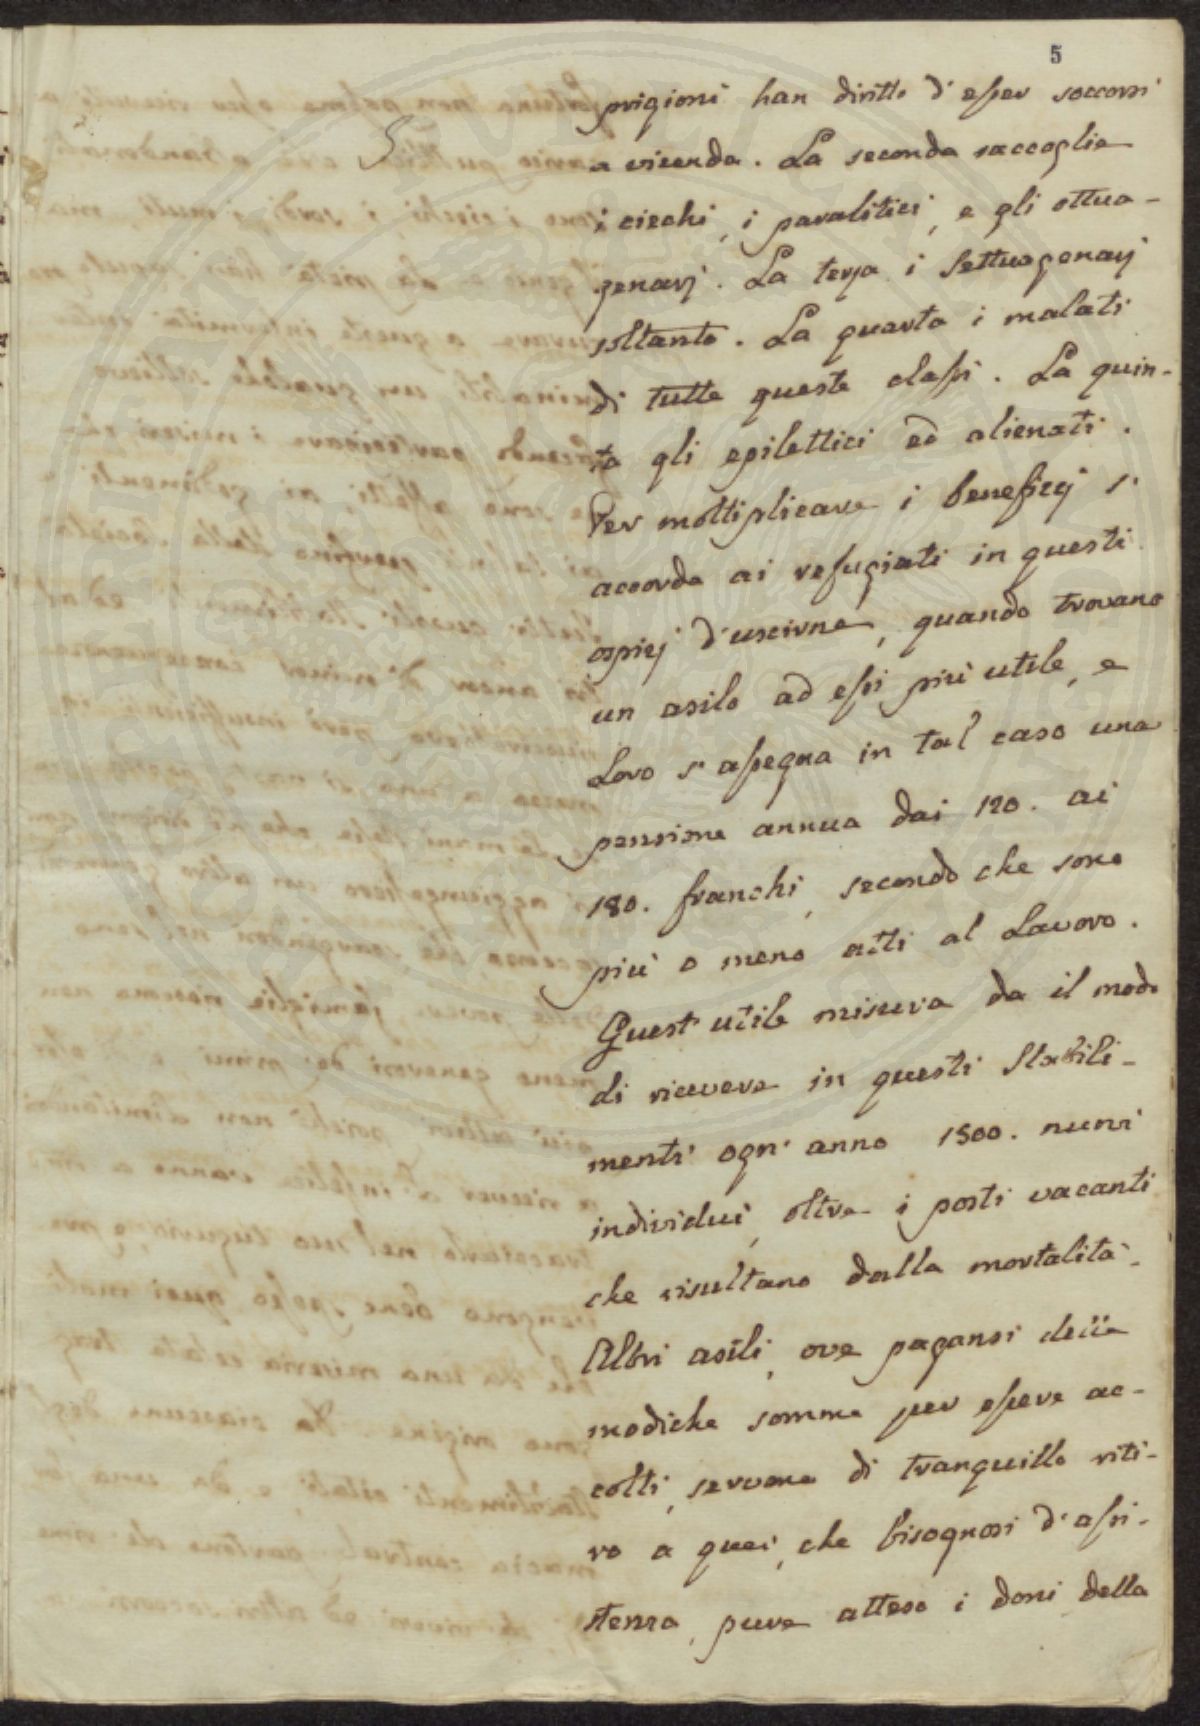 5
5
prigioni han diritto d'esser soccorsi
a vicenda. La seconda raccoglie
i ciechi, i paralitici, e gli ottua-
genarj. La terza i Settuagenarj
soltanto. La quarta i malati
di tutte queste classi. La quin-
ta gli epilettici ed alienati.
Per moltiplicare i beneficj s'
accorda ai refugiati in questi
ospizj d'uscirne, quando trovano
un asilo ad essi più utile, e
Loro s'assegna in tal caso una
pensione annua dai 120. ai
180. franchi, secondo che sono
più o meno atti al Lavoro.
Quest'utile misura da il modo
di ricevere in questi Stabili-
menti ogni anno 1500. nuovi
individui, oltre i posti vacanti
che risultano dalla mortalità.
Altri asili, ove pagansi delle
modiche somme per essere ac-
colti, servono di tranquillo riti-
ro a quei, che bisognosi d'assi-
stenza, pure atteso i doni della